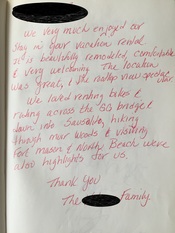 We very much enjoyed our
stay in your vacation rental.
It is beautifully remodeled, comfortable
& very welcoming. The location
was great, & the rooftop view spectacular.
We loved renting bikes &
riding across the GG bridge
down into Sausalito, hiking
though Muir Woods & visiting
Fort Mason & North Beach were
also highlights for us.
Thank You
The Family